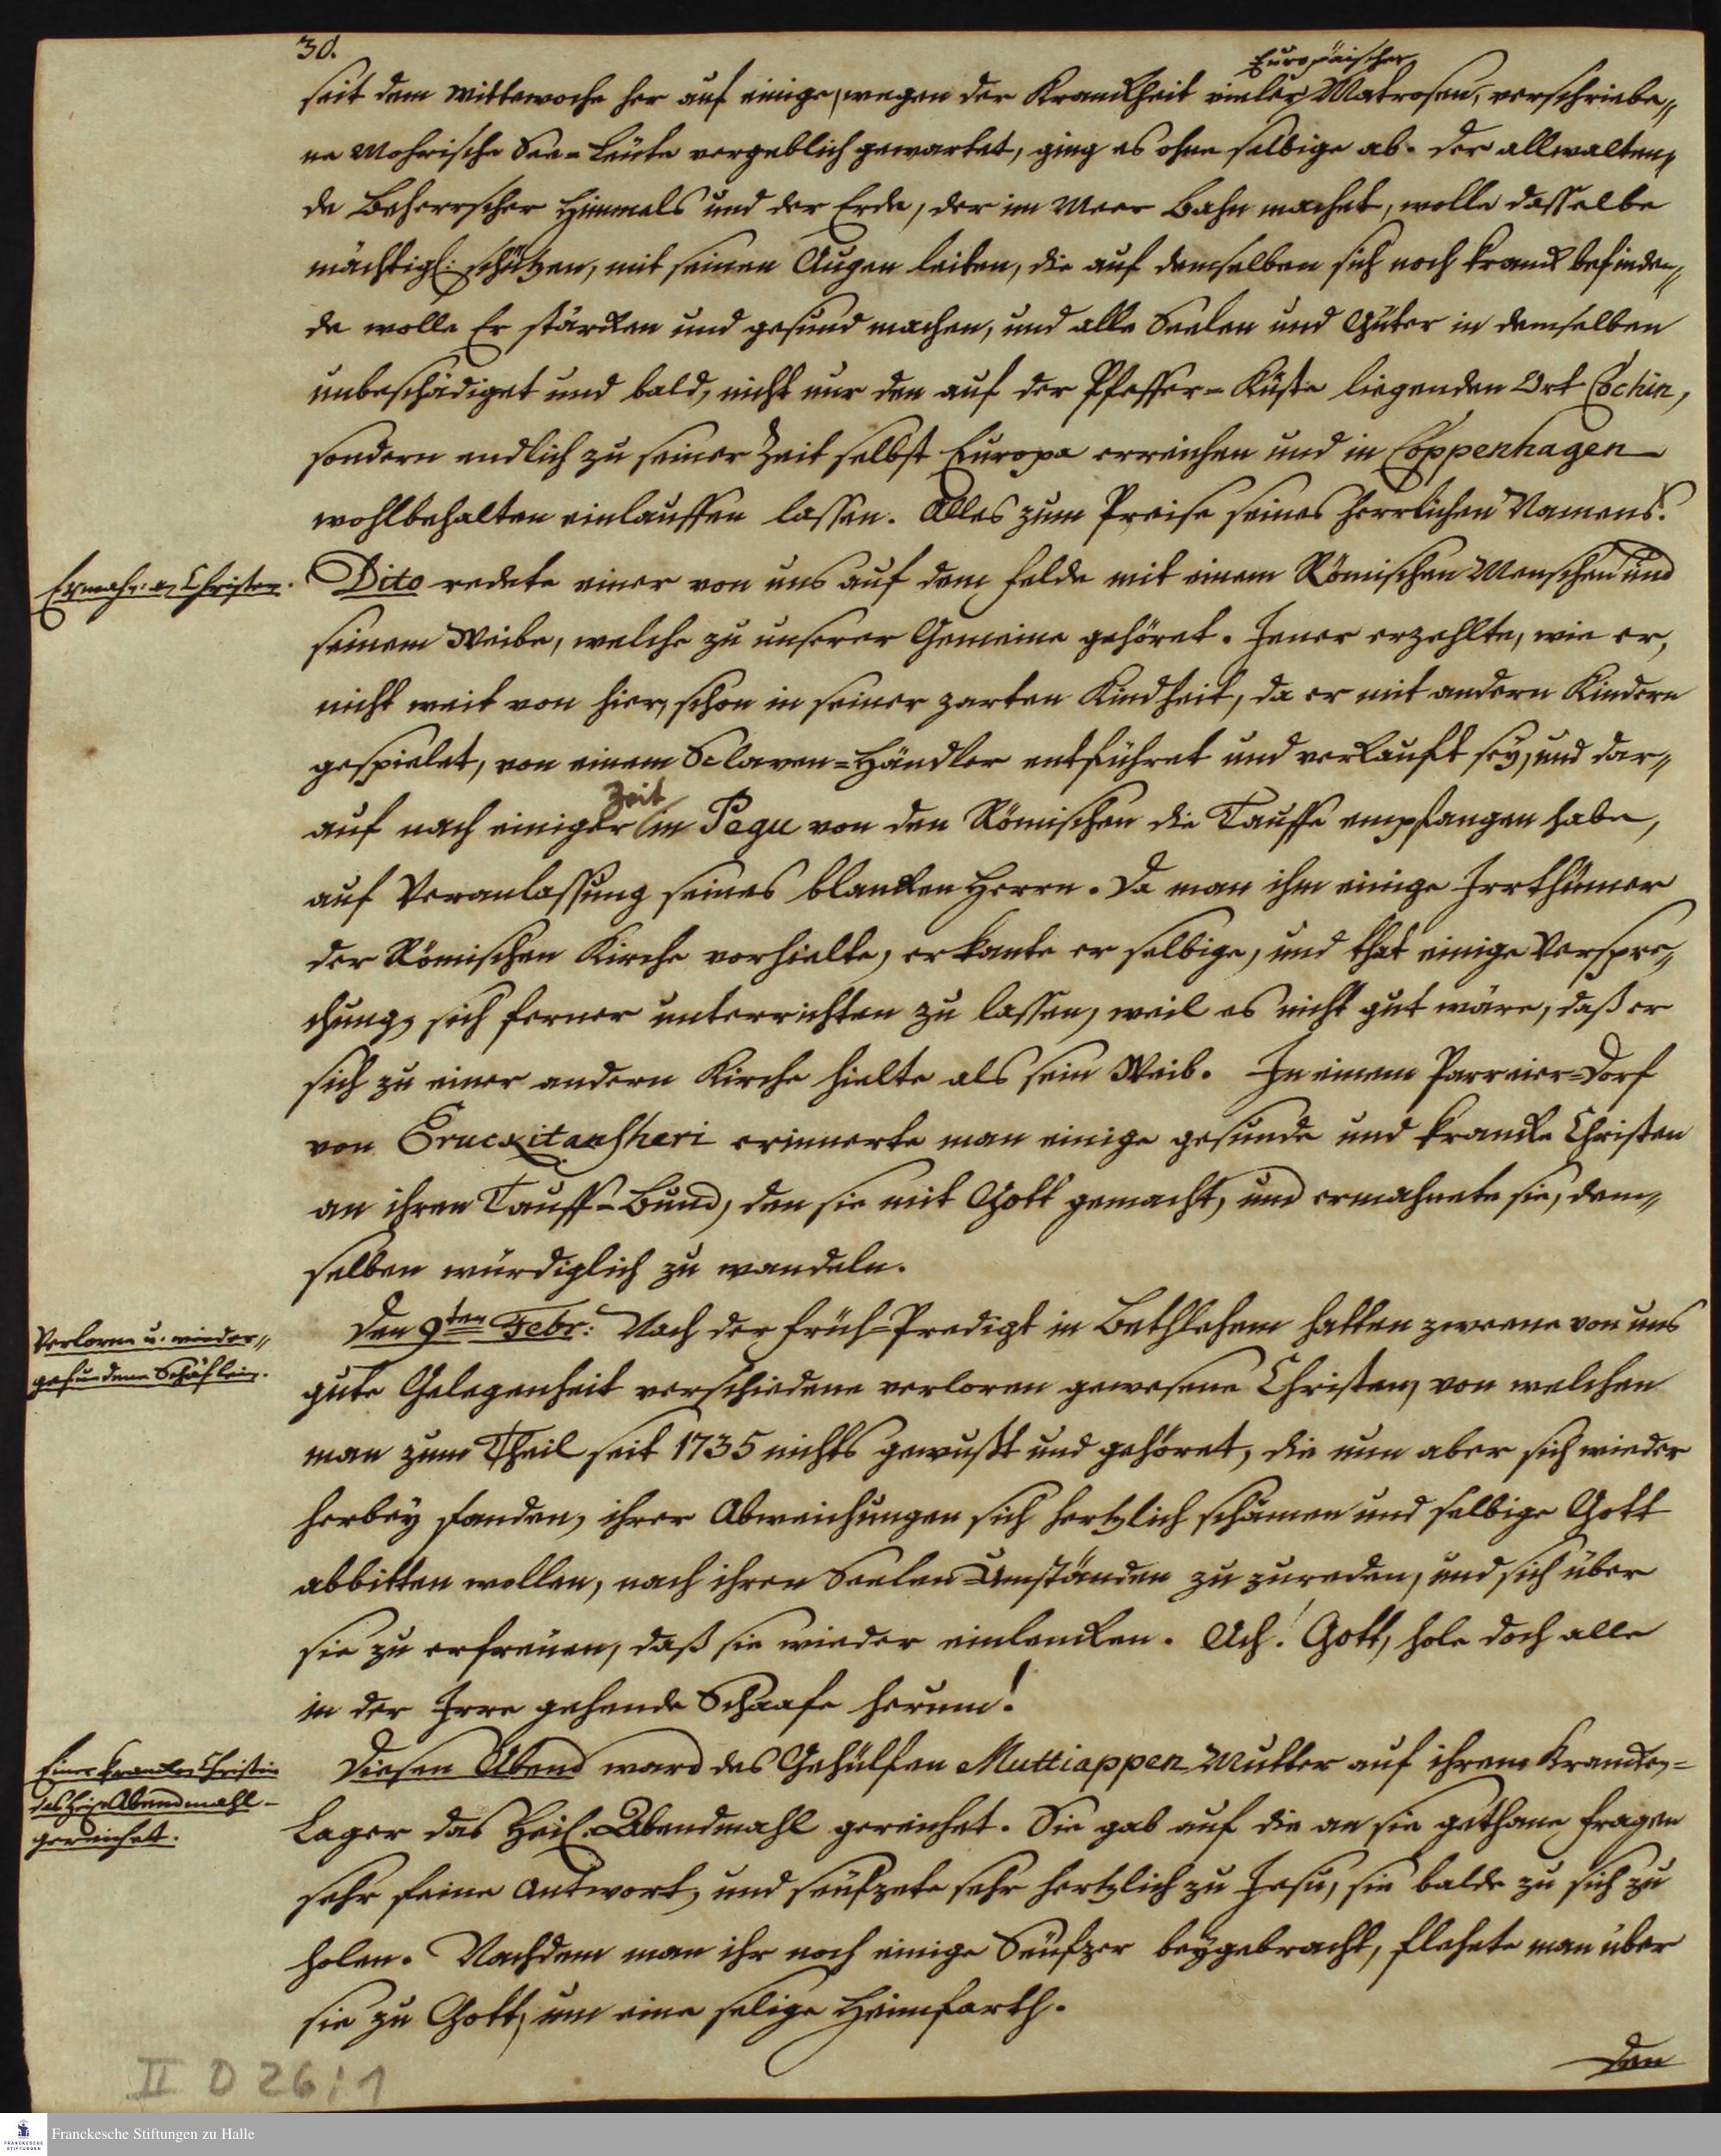 30.
Europäischer
seit dem Mittewoche her auf einige, wegen der Kranckheit vieler Matrosen, verschriebe„
ne Mohrische See-Leute vergeblich gewartet, ging es ohne selbige ab. Der allwalten„
de Beherrscher Himmels und der Erde, der im Meer Bahn machet, wolle dasselbe
mächtigl: schützen, mit seinen Augen leiten, die auf demselben sich noch kranck befinden„
de wolle Er stärcken und gesund machen, und alle Seelen und Güter in demselben
unbeschädiget und bald, nicht nur den auf der Pfeffer-Küste liegenden Ort Cochin,
sondern endlich zu seiner Zeit selbst Europa erreichen und in Coppenhagen
wohlbehalten einlauffen lassen. Alles zum Preise seines herrlichen Namens!
Ermahn: an Christen.
Dito redete einer von uns auf dem Felde mit einem Römischen Menschen und
seinem Weibe, welche zu unserer Gemeine gehöret. Jener erzehlte, wie er,
nicht weit von hier, schon in seiner zarten Kindheit, da er mit andern Kindern
gespielet, von einem Sclaven-Händler entführet und verkauft sey, und dar„
Zeit
auf nach einiger in Pegu von den Römischen die Tauffe empfangen habe,
auf Veranlassung seines blancken Herrn. Da man ihm einige Irrthümer
der Römischen Kirche vorhielte, erkante er selbige, und that einige Verspre„
chung, sich ferner unterrichten zu lassen, weil es nicht gut wäre, daß er
sich zu einer andern Kirche hielte als sein Weib. In einem Parreier-Dorf
von erinnerte man einige gesunde und krancke Christen
an ihren Tauff-Bund, den sie mit Gott gemacht, und ermahnete sie, dem„
selben würdiglich zu wandeln.
Verlorne u. wieder„
gefundene Schäflein.
Den 9ten Febr: Nach der Früh-Predigt in Bethlehem hatten zweene von uns
gute Gelegenheit verschiedene verloren gewesene Christen, von welchen
man zum Theil seit 1735 nichts gewußt und gehöret, die nun aber sich wieder
herbey fanden, ihrer Abweichungen sich hertzlich schämen und selbige Gott
abbitten wollen, nach ihren Seelen-Umständen zu zureden, und sich über
sie zu erfreuen, daß sie wieder einlencken. Ach! Gott, hole doch alle
in der Irre gehende Schaafe herum!
Einer krancken Christin
das Heil. Abendmahl
gereichet.
Diesen Abend ward des Gehülfen Muttiappen Mutter auf ihrem Krancken-
Lager das Heil. Abendmahl gereichet. Sie gab auf die an sie gethane Fragen
sehr feine Antwort, und seufzete sehr hertzlich zu Jesu, sie balde zu sich zu
holen. Nachdem man ihr noch einige Seufzer beygebracht, flehete man über
sie zu Gott, um eine selige Heimfarth.
Den
II D 26:1
FRANCKESCHE STIFTUNGEN
Franckesche Stiftungen zu Halle